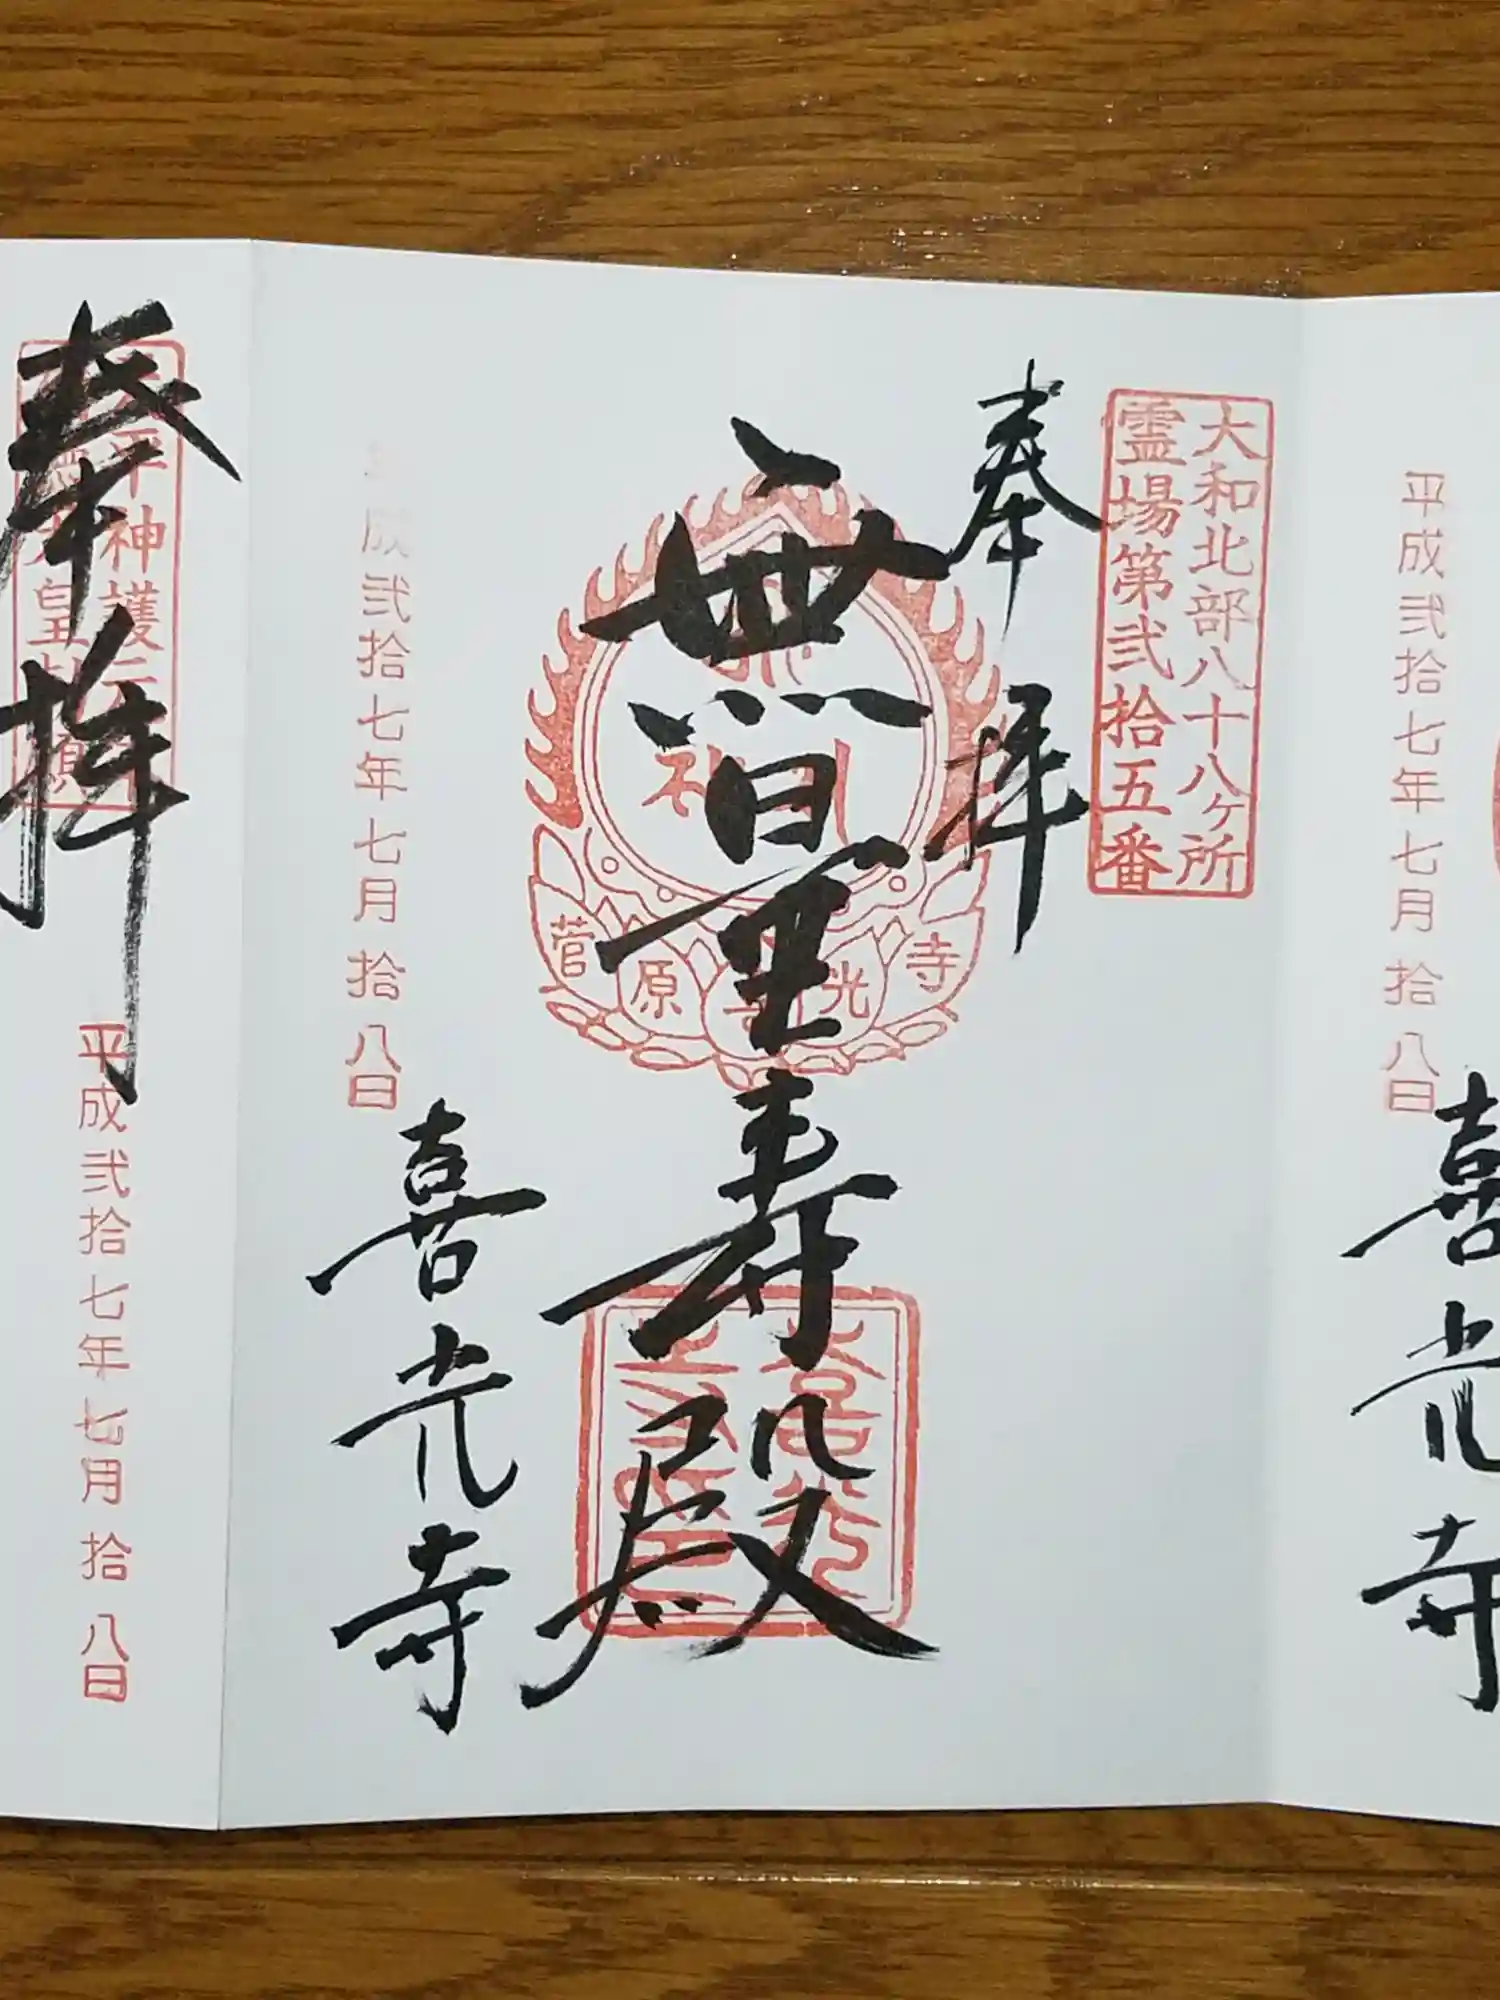 大和北部八十八ヶ所
霊場第弐拾五番
奉拝
無量寿殿
菅原喜光寺
成弐拾七年七月拾八日
喜光寺
平成弐拾七年七月拾八日
喜光寺
奉拝
平成弐拾七年七月拾八日